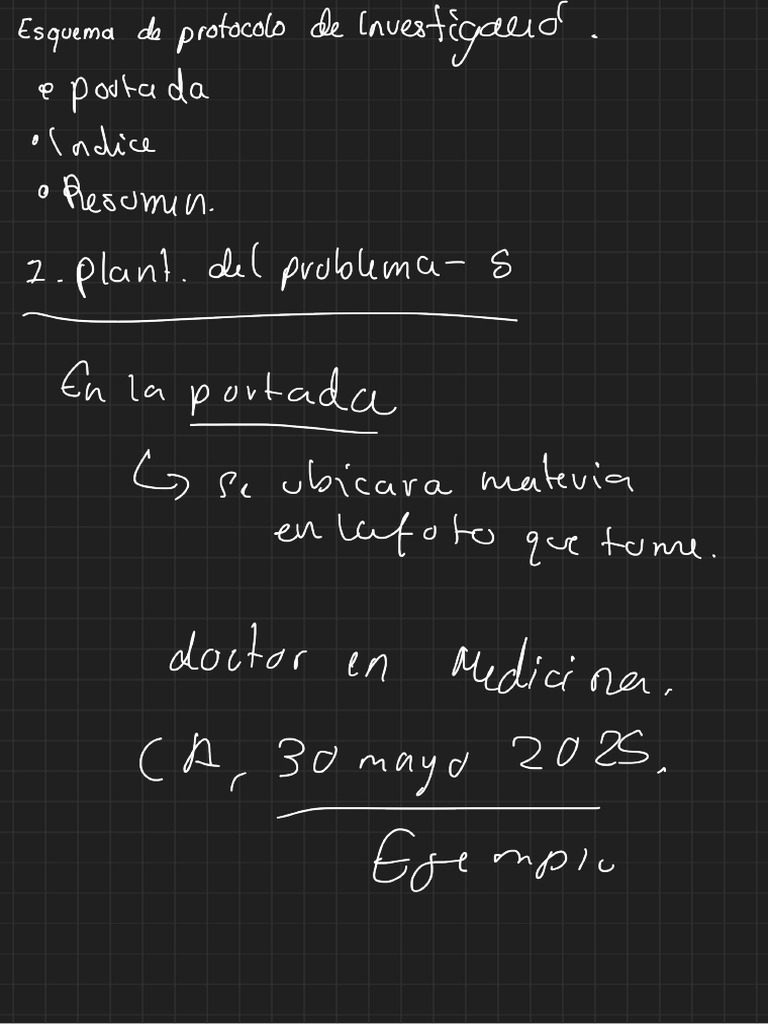 Esquema de protocolo de Investigació.
• portada
• Indice
• Resumen.
2. plant. del problema - S
En la portada
↳ se ubicara materia
en la foto que tome.
doctor en Medicina.
CA, 30 mayo 2025.
Ejemplo